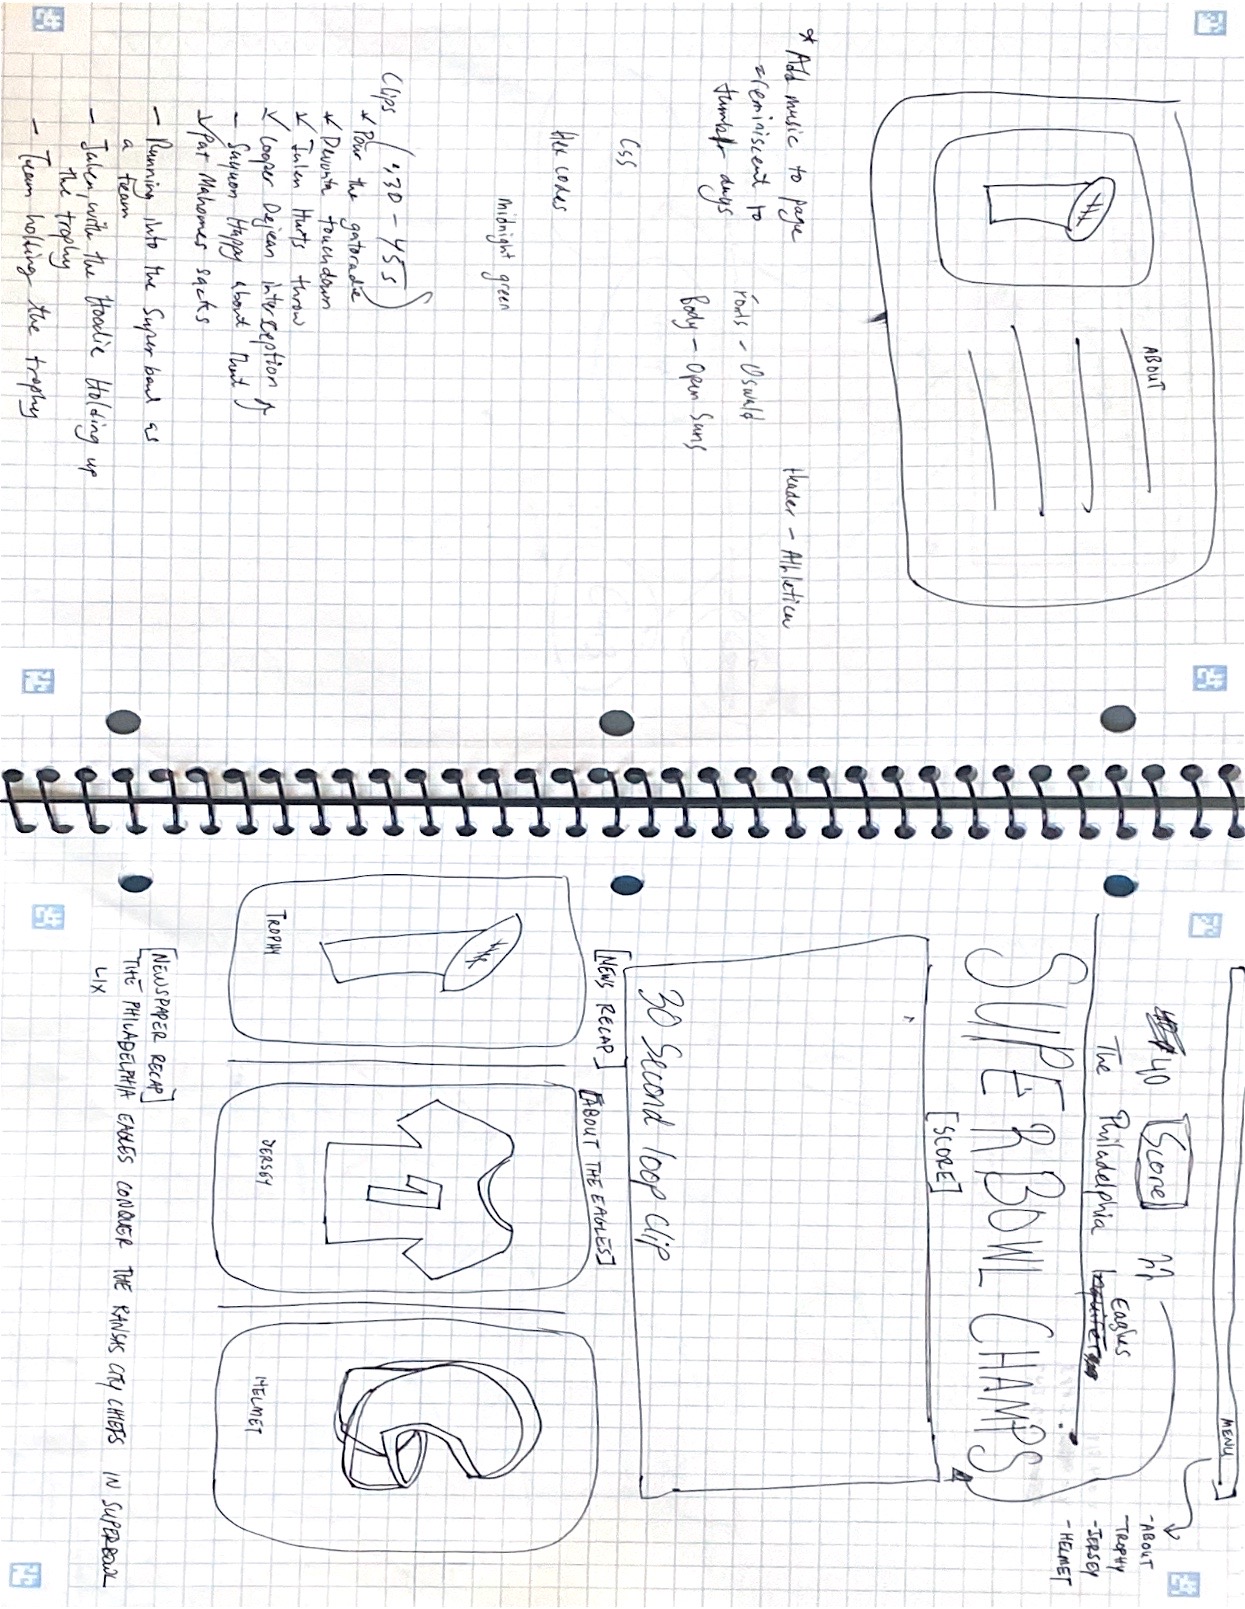 ABOUT
* Add music to page
=reminiscent to
tumblr days
Header - Athletica
Fonts - Oswald
Body - Open Sans
CSS
Hex codes
midnight green
Clips (:30 - 45s)
Pour the gatorade
Devonta touchdown
Jalen Hurts throw
Cooper Dejean interception
- Saquon Happy about that
Pat Mahomes sacks
- Running into the Super bowl as
a team
- Jalen, with the Hoodie Holding up
the trophy
- Team holding the trophy
MENU
-ABOUT
-TROPHY
-JERSEY
-HELMET
40 Score 22
The Philadelphia Eagles
SUPER BOWL CHAMPS
[SCORE]
30 Second loop clip
[NEWS RECAP] [ABOUT THE EAGLES]
1
TROPHY
JERSEY
HELMET
[NEWSPAPER RECAP]
THE PHILADELPHIA EAGLES CONQUER THE KANSAS CITY CHIEFS IN SUPERBOWL
LIX